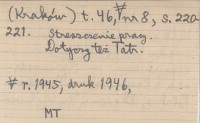 (Kraków) t. 46, # nr 8, s. 220-
221. Streszczenie pracy.
Dotyczy też Tatr.
# r. 1945, druk 1946,
MT